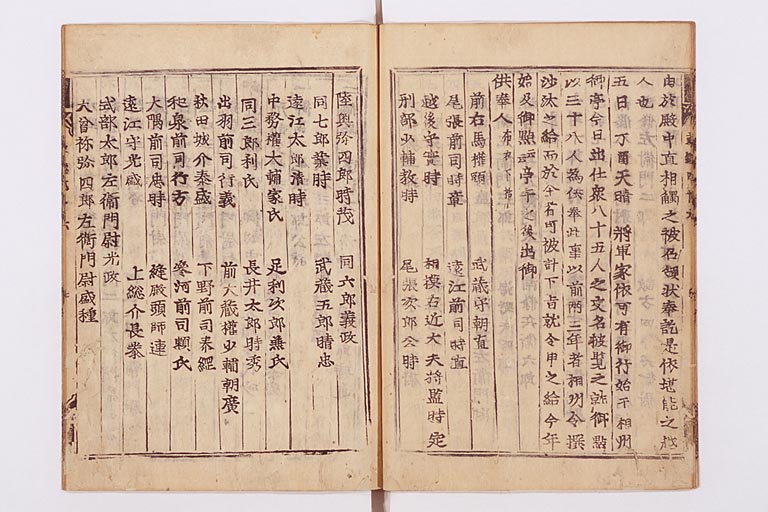 由於殿中直相觸之被召領状奉訖是依堪能之越
人也
五日 丁酉 天晴 將軍家依可有御行始于相州
御亭今日出仕衆八十五人之交名被覧之訖御點
以三十八人為供奉此事以前兩三年者相州令撰
沙汰之給而於今者可被計下旨就令申之給今年
始及御點云云亭午之後出御
供奉人 布衣下括
前右馬權頭 武藏守朝直
尾張前司時章 遠江前司時直
越後守實時 相模右近大夫将監時定
刑部少輔教時 尾張次郎公時
陸奥弥四郎時茂 同六郎義政
同七郎業時 武藏五郎時忠
遠江太郎清時
中務權大輔家氏 足利次郎兼氏
同三郎利氏 長井太郎時秀
出羽前司行義 前大藏權少輔朝廣
秋田城介泰盛 下野前司泰綱
和泉前司行方 參河前司頼氏
大隅前司忠時 縫殿頭師連
遠江守光盛 上総介長泰
式部太郎左衛門尉光政
大曾祢弥四郎左衛門尉盛種